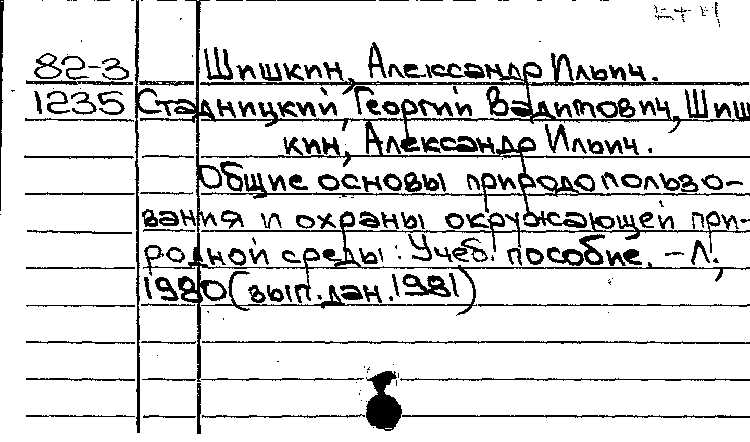 82-3 Шишкин, Александр Ильич.
1235 Стадницкий, Георгий Вадимович, Шиш
кин, Александр Ильич.
Общие основы природопользо-
вания и охраны окружающей при-
родной среды: Учеб. пособие. - Л.,
1980 (вып. дан. 1981)